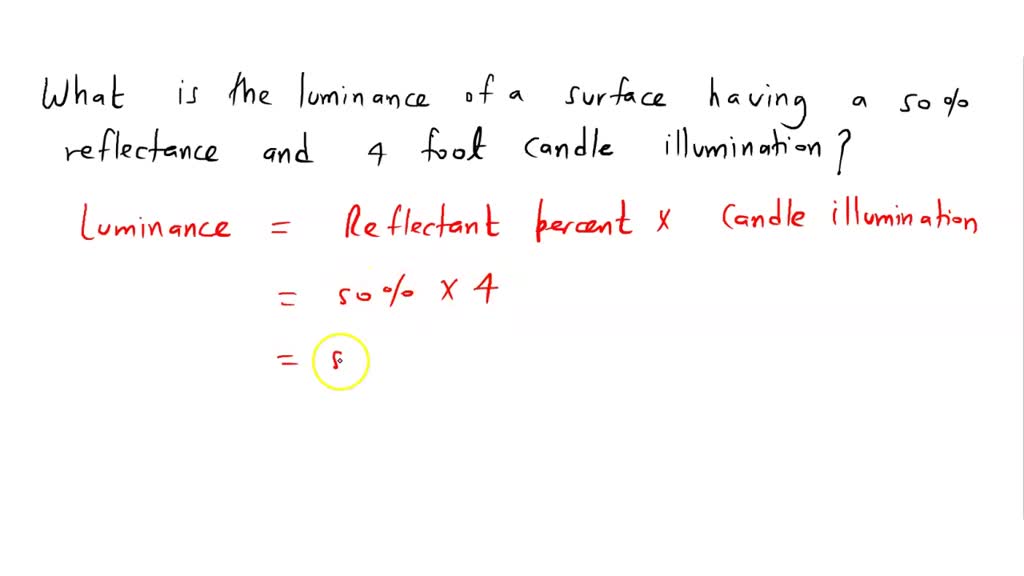 What is the luminance of a surface having a 50%
reflectance and 4 foot candle illumination?
Luminance = Reflectant percent x Candle illumination
= 50% x 4
= 5